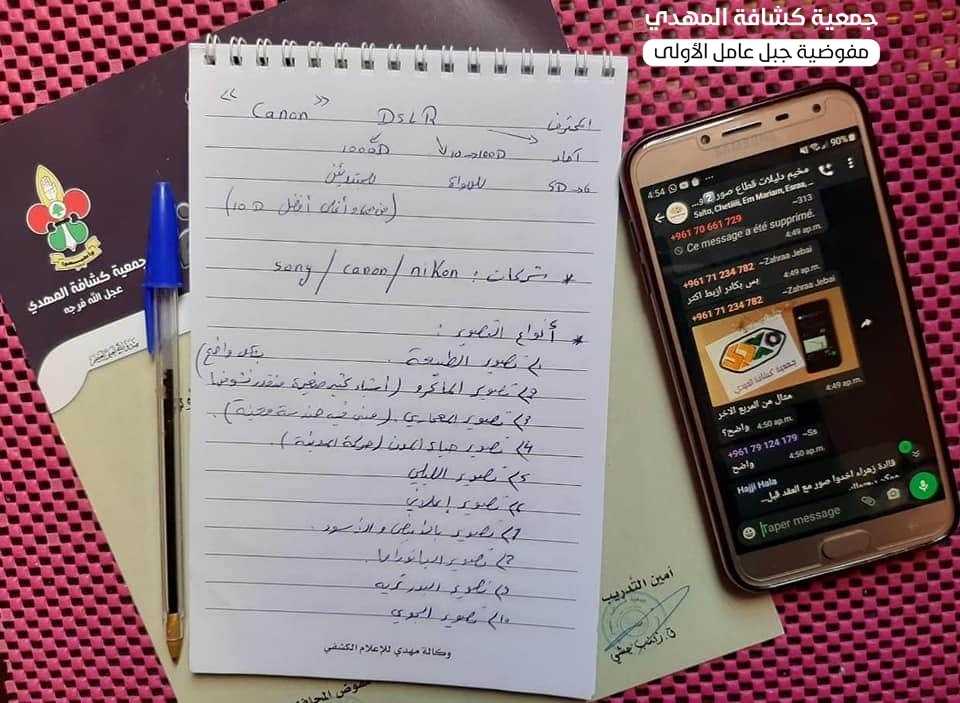 جمعية كشافة المهدي
مفوضية جبل عامل الأولى
جمعية كشافة المهدي
عجل الله فرجه
« Canon » DSLR المحترف
1000D 10→100D آحاد
للمبتدئين للهواة 5D
10D أفضل
* شركات: sony / canon / nikon
* أنواع التصوير:
1 تصوير الطبيعة.
2 تصوير الماكرو (أشياء كثير صغيرة منقدر نشوفها بشكل واضح)
3 تصوير المعماري. (مبنى في هندسة معينة).
4 تصوير حياة المدن (حركة المدينة).
5 تصوير الليلي
6 تصوير إعلاني
7 تصوير بالأبيض والأسود.
8 تصوير البانوراما.
9 تصوير البورتريه
10 تصوير الجوي
وكالة مهدي للإعلام الكشفي
SAMSUNG
4:54 90%
مخيم دليلات قطاع صور 2 و...
Saito, Chetiiiii, Em Mariam, Esraa, ...
+961 70 661 729 ~313
Ce message a été supprimé.
4:49 p.m.
+961 71 234 782 ~Zahraa Jebai
بس بكادر ازبط اكتر 4:49 p.m.
+961 71 234 782 ~Zahraa Jebai
جمعية كشافة المهدي
4:49 p.m.
مثال من المربع الاخر
واضح؟ 4:50 p.m.
+961 79 124 179 ~Ss
واضح 4:50 p.m.
Hajji Hala
قائدة زهراء اخدوا صور مع العقد قبل...
Taper message
أمين التدريب